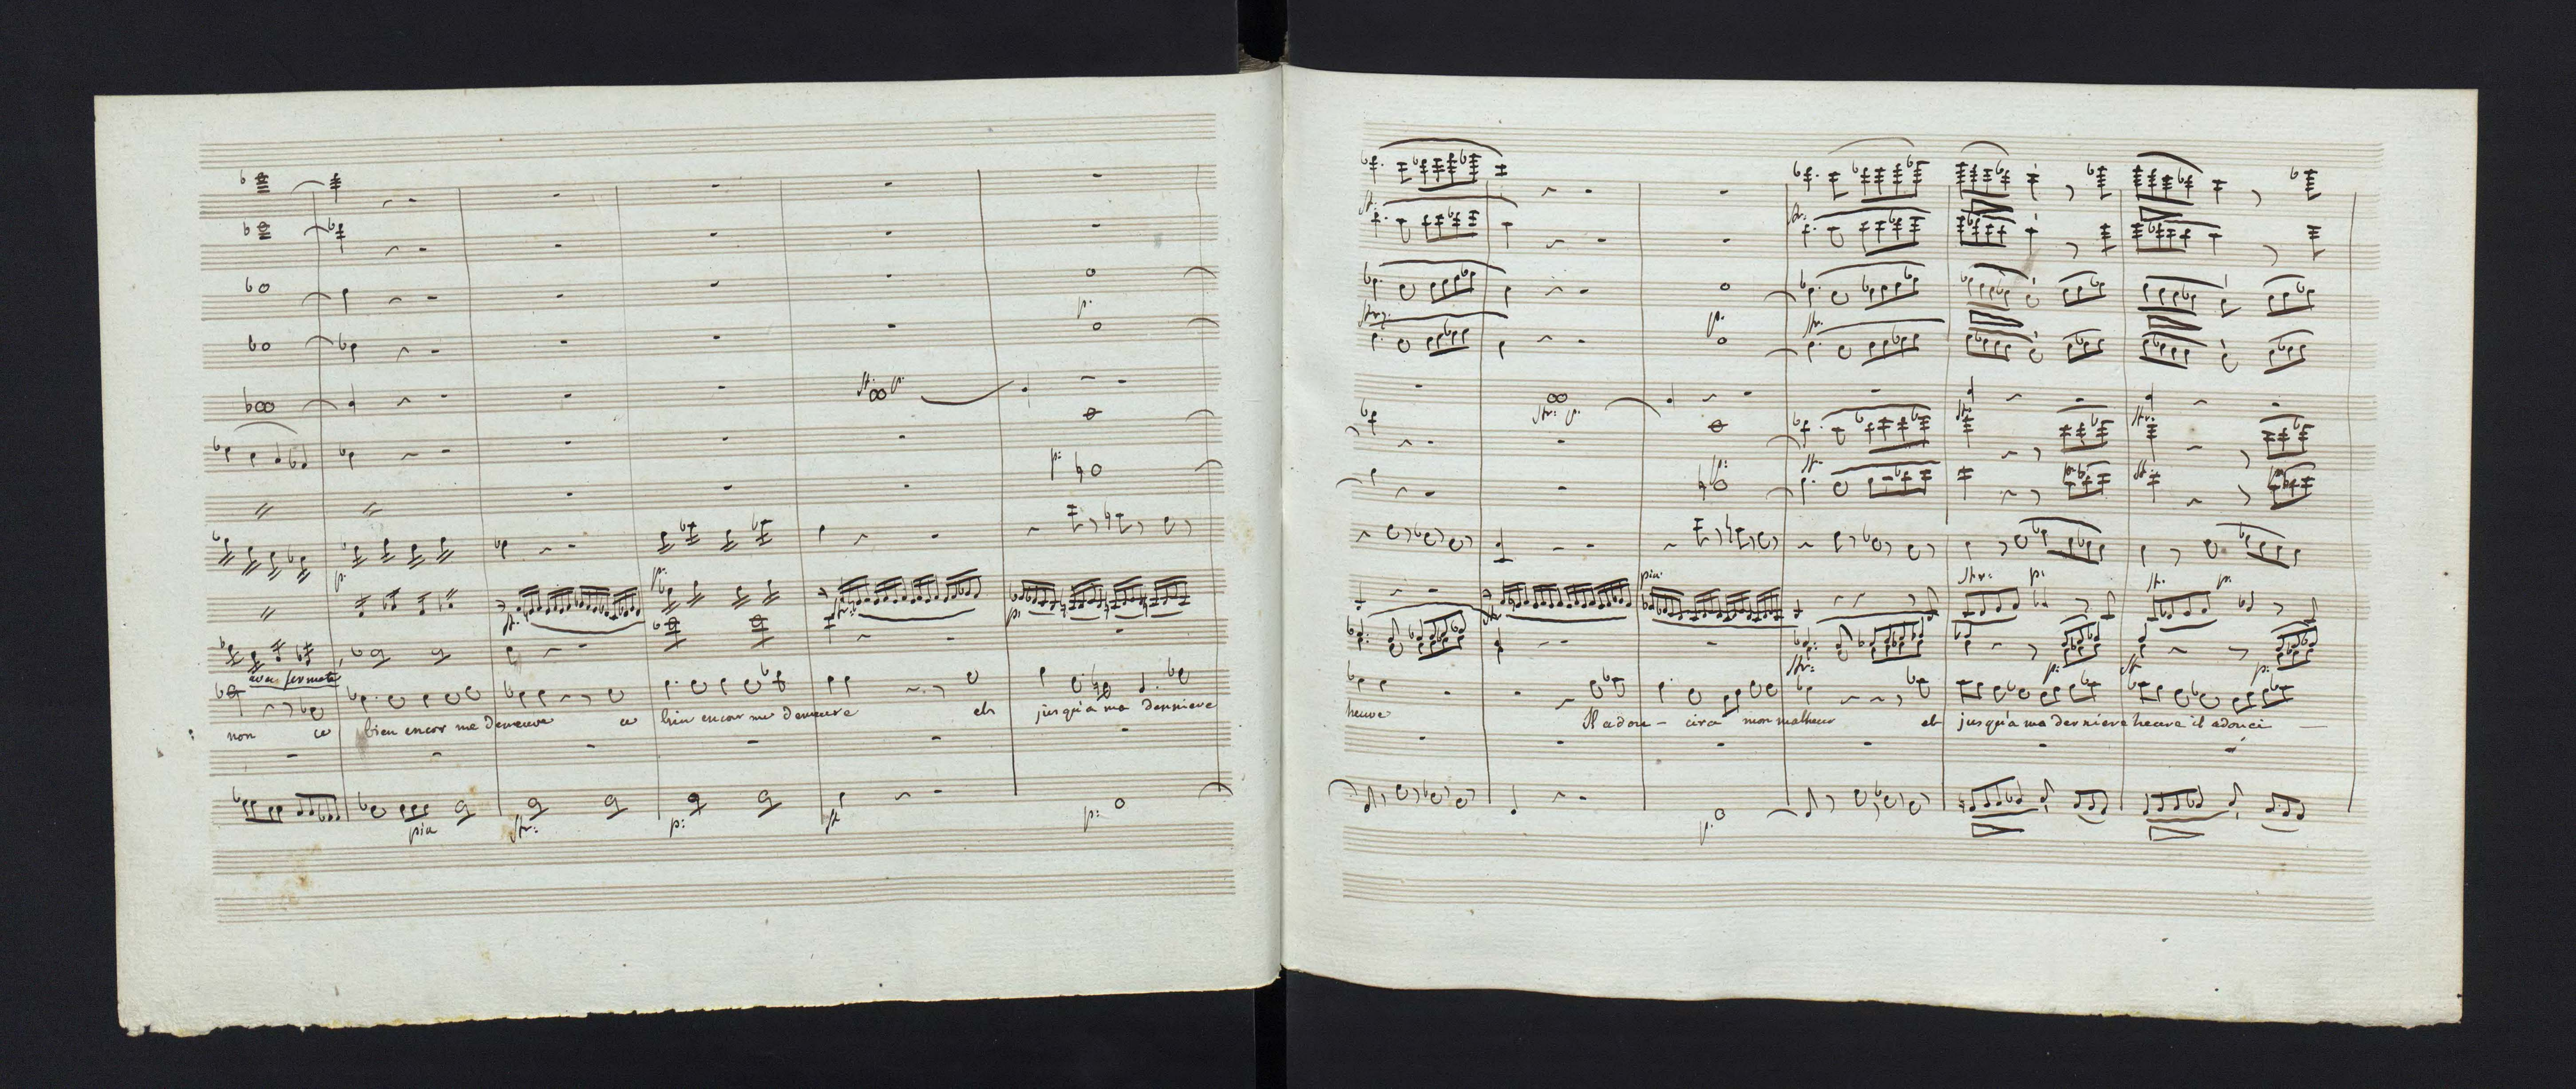 p.
fr: p.
p:
p.
p:
fr:
fr:
p:
avec fermeté
non ce bien encor me demeure ce bien encor me demeure et jusqu'à ma derniere
piu
p:
p:
p:
p.
fr: p.
p:
piu
p:
p:
heure Il adou - cira mon malheur et jusqu'à ma derniere heure il adouci
p.